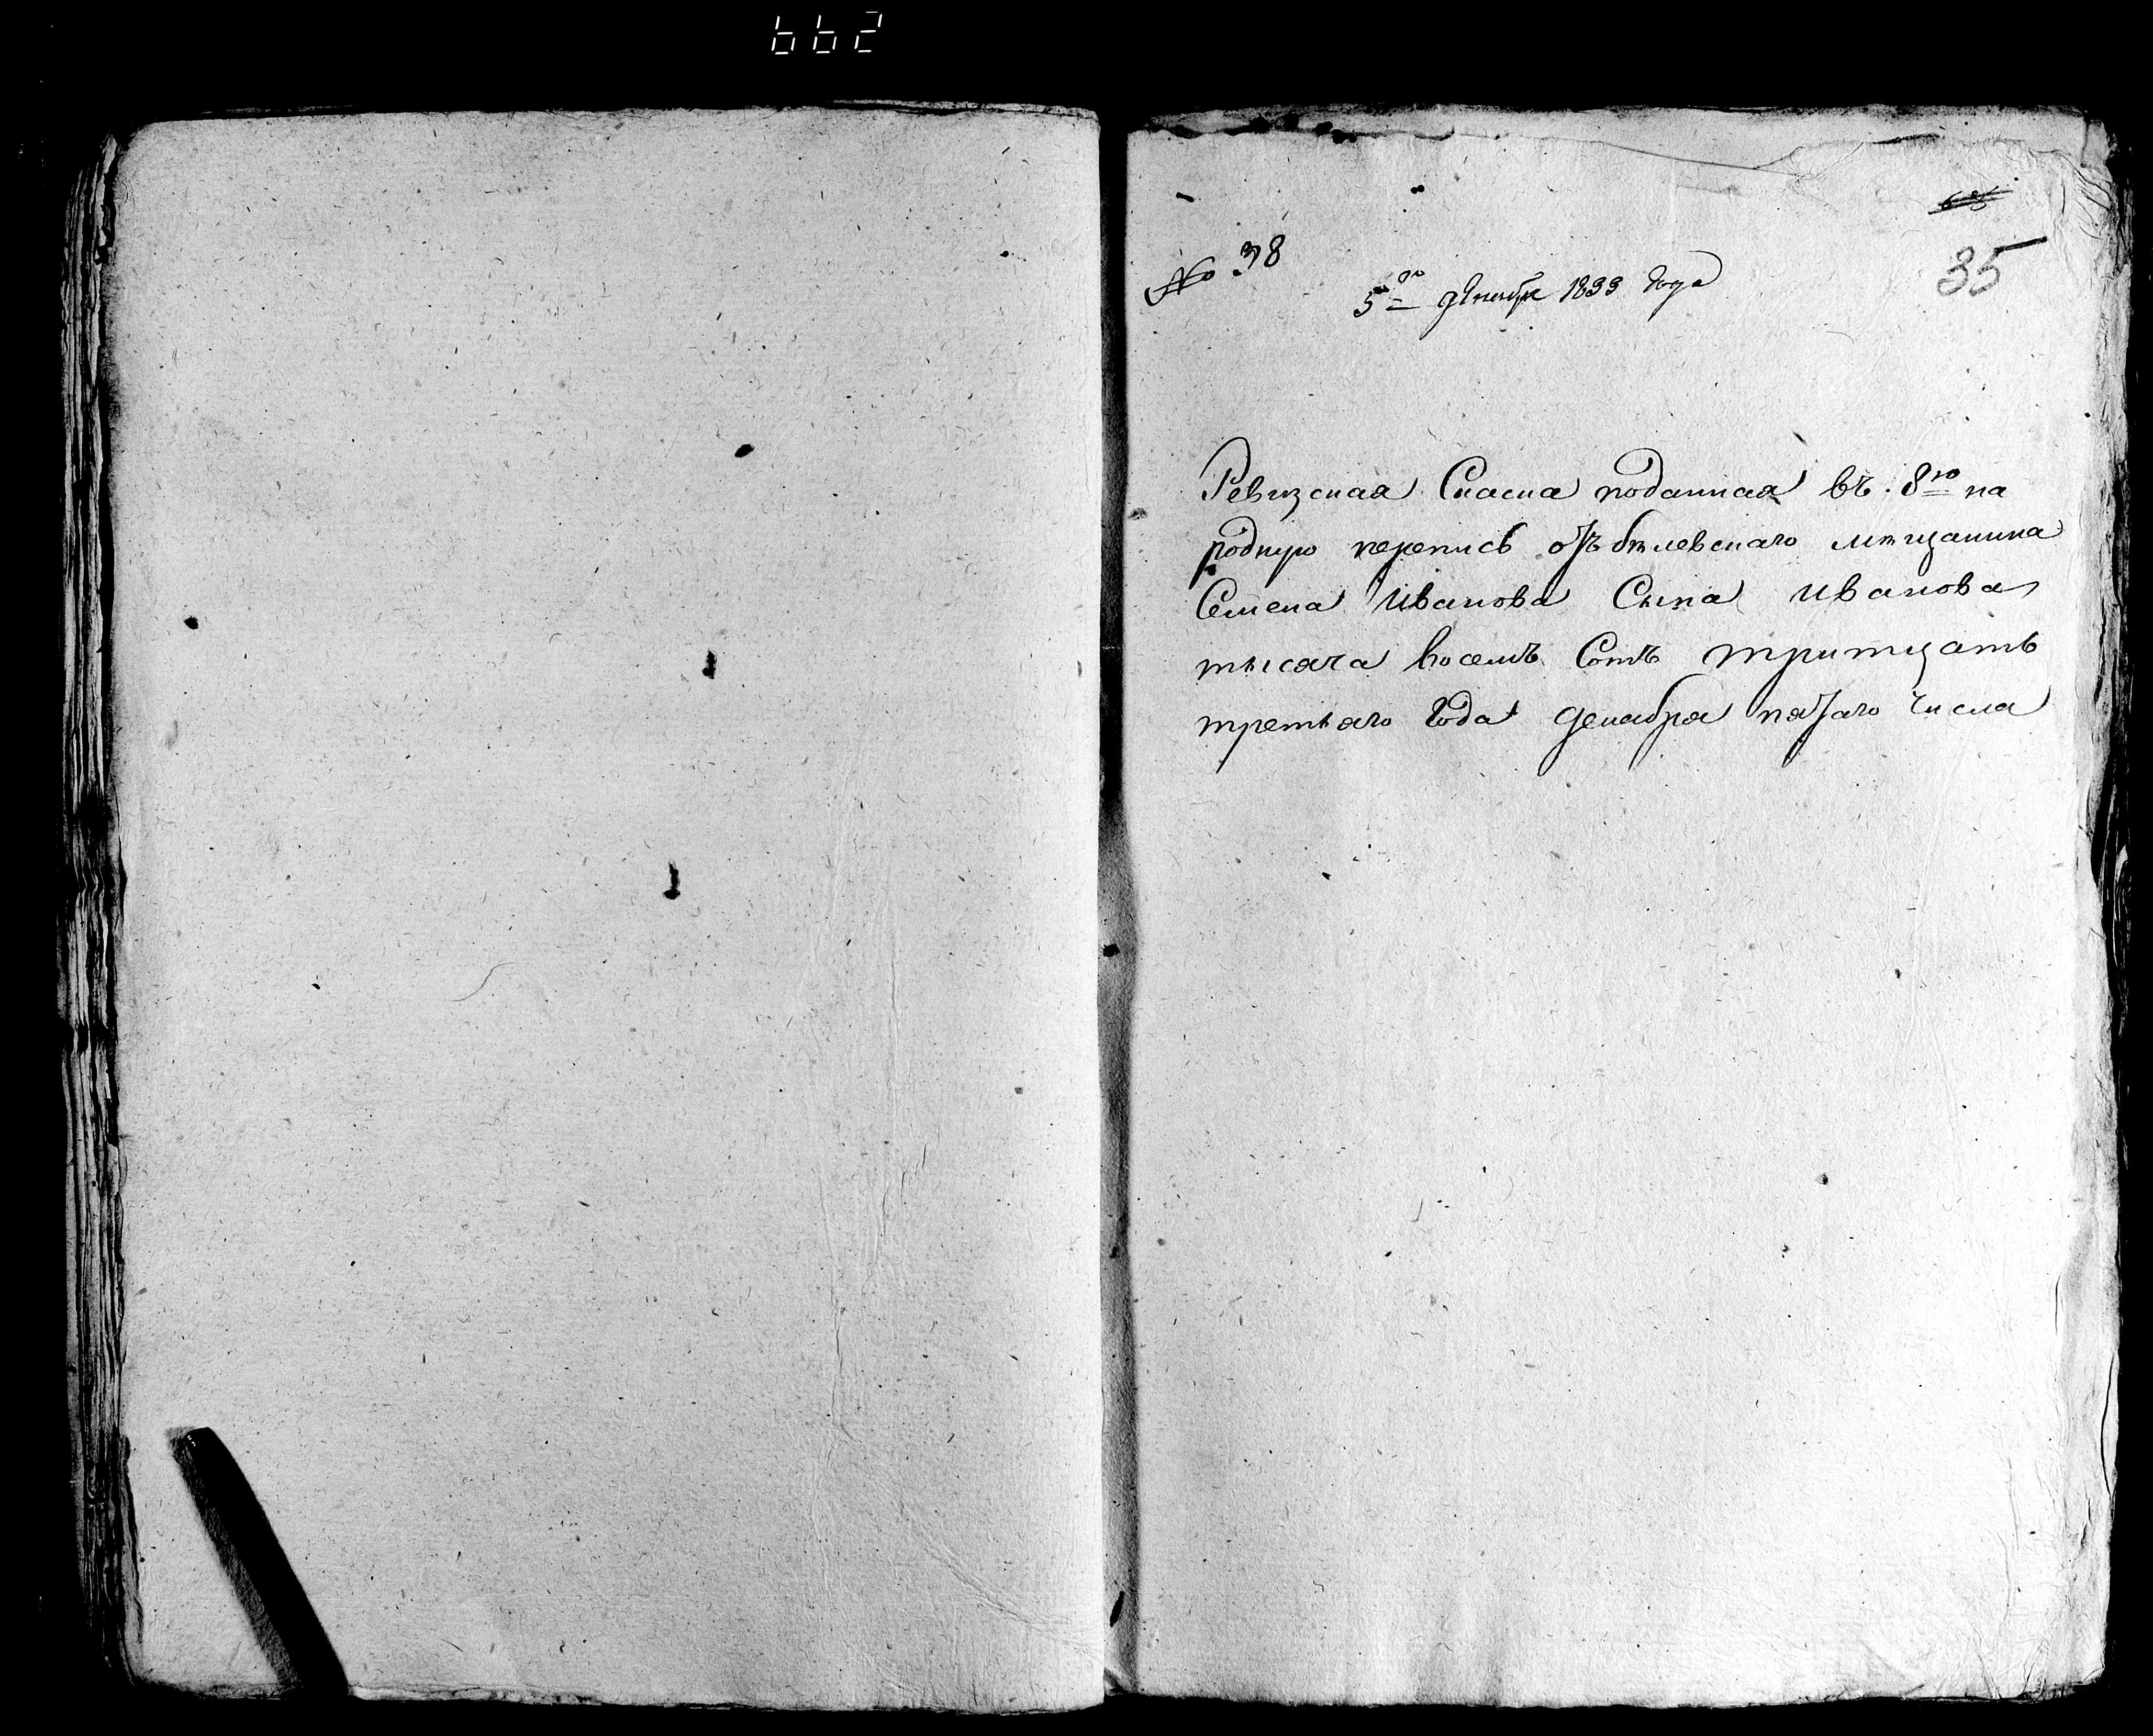 662
№ 38
5го декабря 1833 года
35
Ревизская Скаска поданная въ 8ю на
родную перепись отъ белевскаго мещанина
Семена Иванова Сына Иванова
тысяча восемъ Сотъ тритцать
третьяго Года декабря пятаго Числа